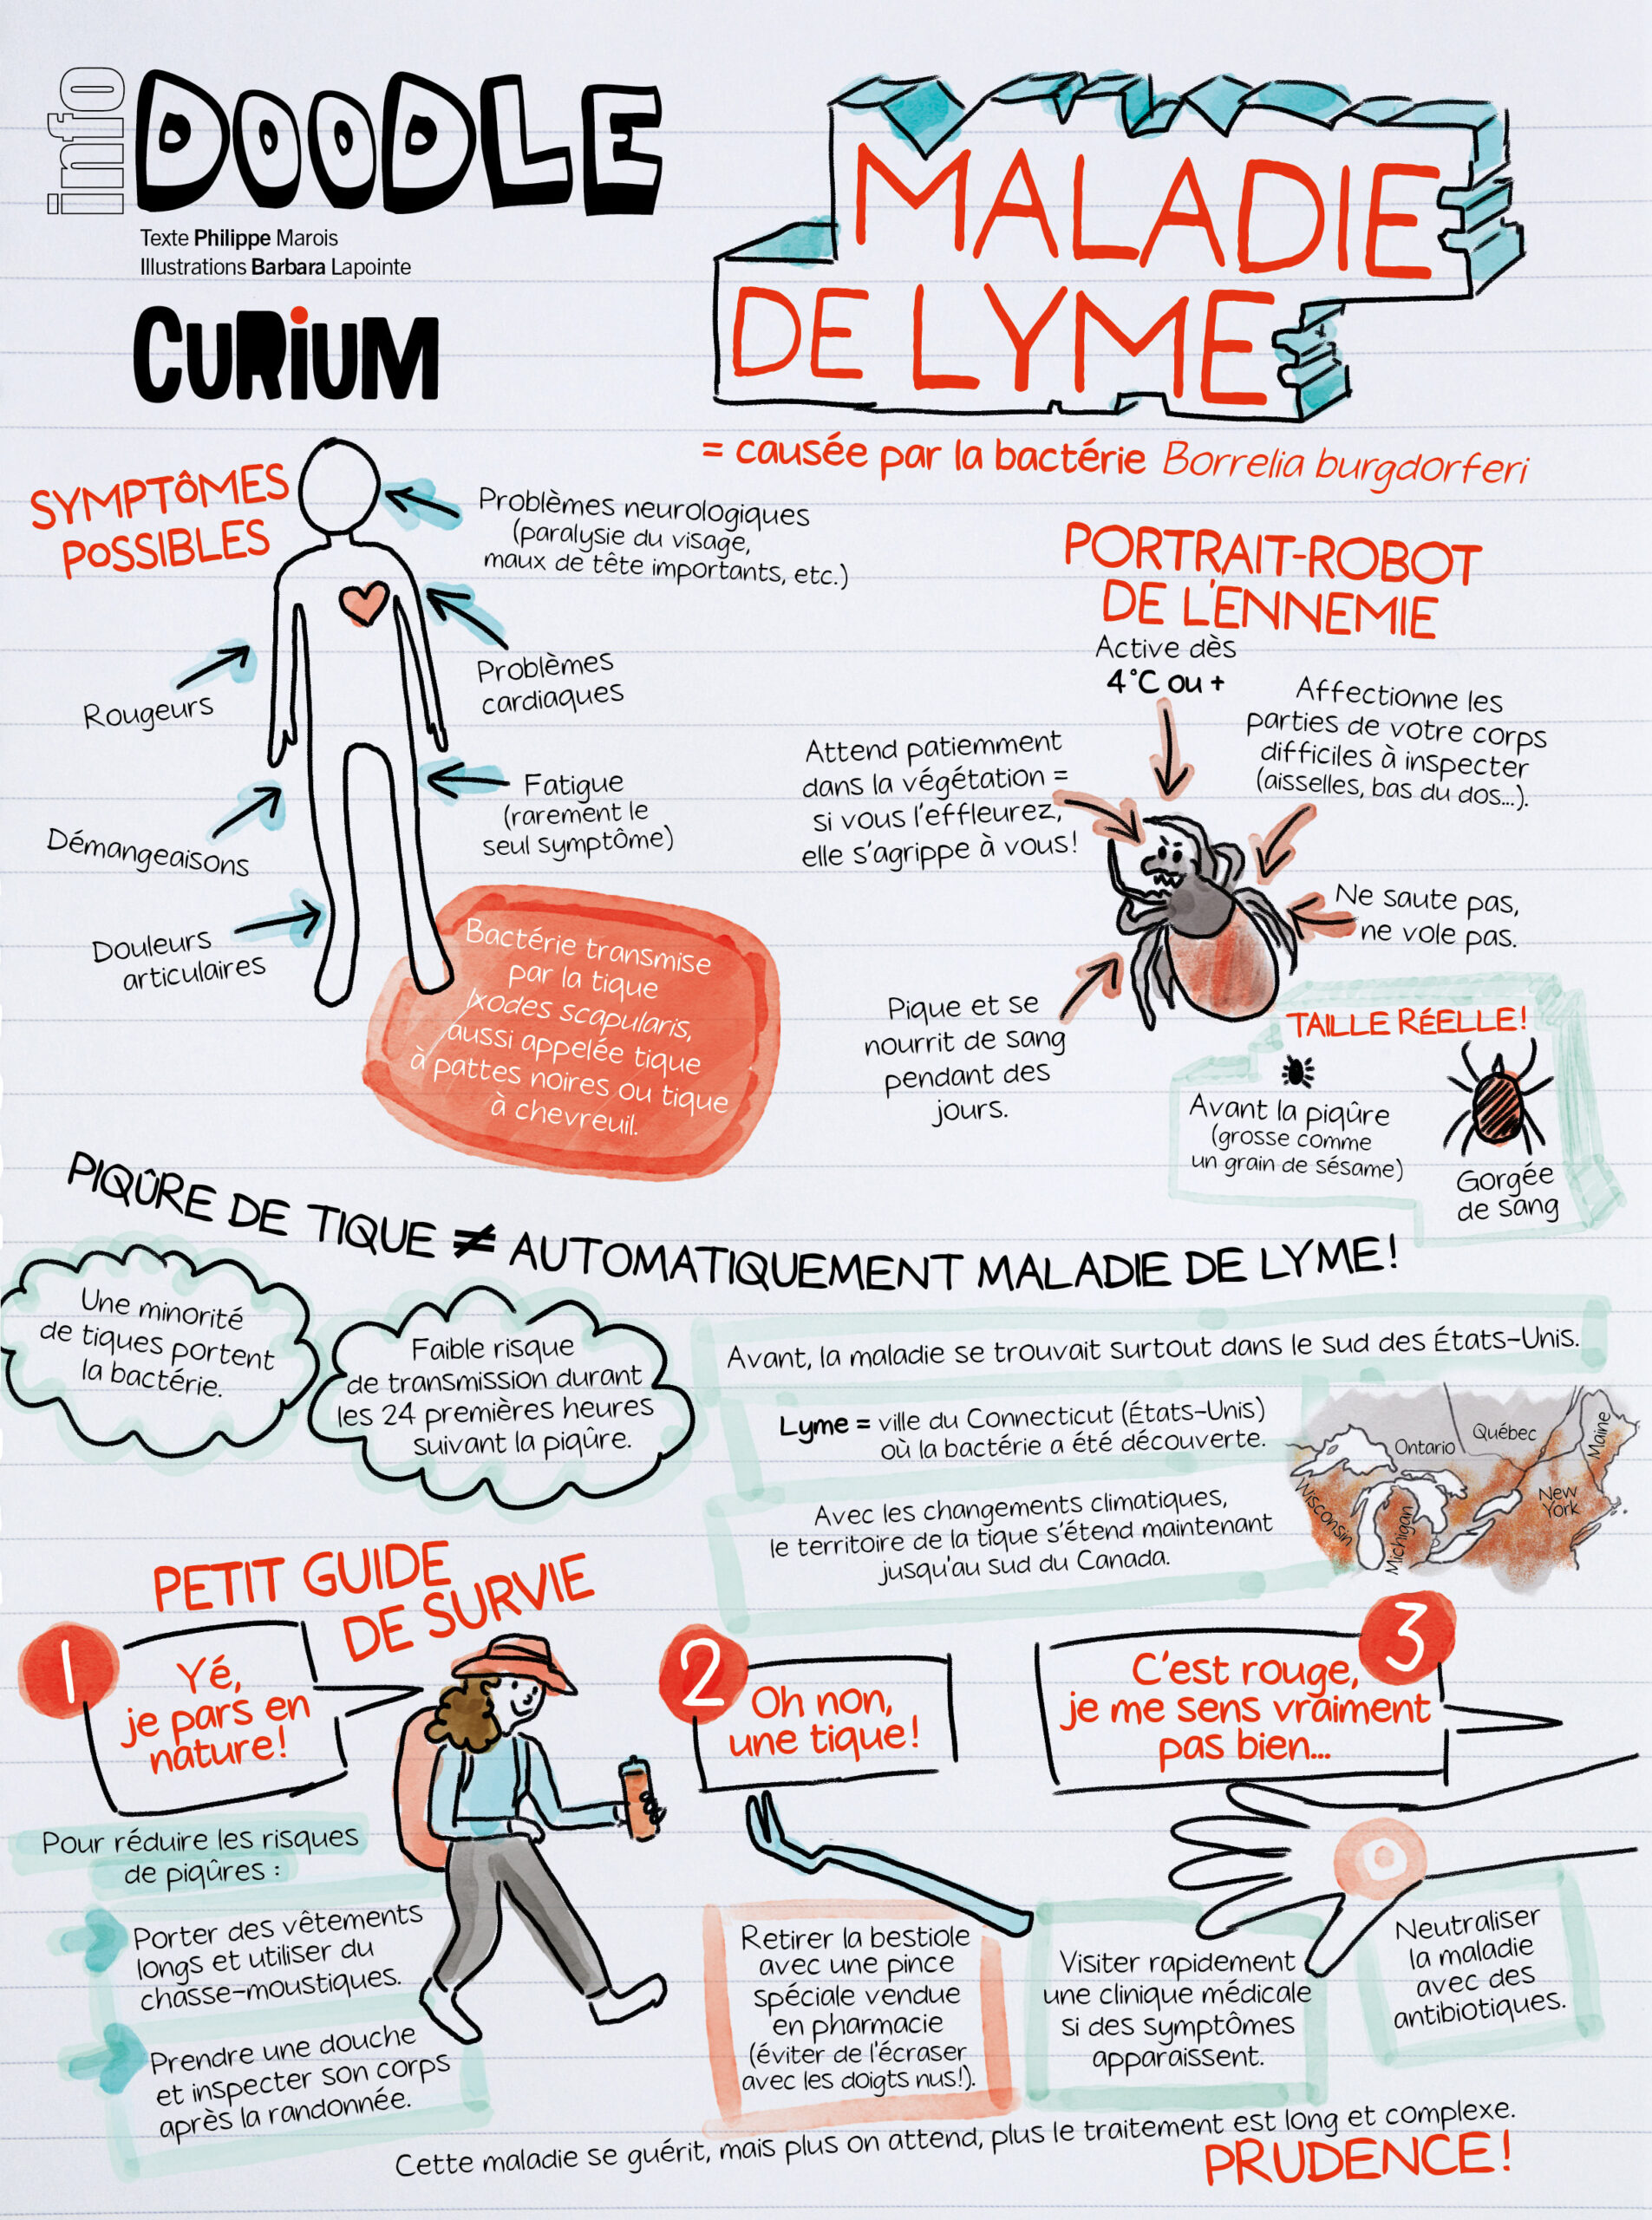 info DOODLE
Texte Philippe Marois
Illustrations Barbara Lapointe
CURiUM
MALADIE
DE LYME
= causée par la bactérie Borrelia burgdorferi
SYMPTÔMES
POSSIBLES
Problèmes neurologiques
(paralysie du visage,
maux de tête importants, etc.)
Problèmes
cardiaques
Rougeurs
Fatigue
(rarement le
seul symptôme)
Démangeaisons
Douleurs
articulaires
Bactérie transmise
par la tique
Ixodes scapularis,
aussi appelée tique
à pattes noires ou tique
à chevreuil.
PORTRAIT-ROBOT
DE L'ENNEMIE
Active dès
4°C ou +
Affectionne les
parties de votre corps
difficiles à inspecter
(aisselles, bas du dos...).
Attend patiemment
dans la végétation =
si vous l'effleurez,
elle s'agrippe à vous!
Ne saute pas,
ne vole pas.
Pique et se
nourrit de sang
pendant des
jours.
TAILLE RÉELLE!
Avant la piqûre
(grosse comme
un grain de sésame)
Gorgée
de sang
PIQÛRE DE TIQUE ≠ AUTOMATIQUEMENT MALADIE DE LYME!
Une minorité
de tiques portent
la bactérie.
Faible risque
de transmission durant
les 24 premières heures
suivant la piqûre.
Avant, la maladie se trouvait surtout dans le sud des États-Unis.
Lyme = ville du Connecticut (États-Unis)
où la bactérie a été découverte.
Avec les changements climatiques,
le territoire de la tique s'étend maintenant
jusqu'au sud du Canada.
Ontario
Québec
Maine
Wisconsin
Michigan
New
York
PETIT GUIDE
DE SURVIE
1
Yé,
je pars en
nature!
Pour réduire les risques
de piqûres :
Porter des vêtements
longs et utiliser du
chasse-moustiques.
Prendre une douche
et inspecter son corps
après la randonnée.
2
Oh non,
une tique!
Retirer la bestiole
avec une pince
spéciale vendue
en pharmacie
(éviter de l'écraser
avec les doigts nus!).
3
C'est rouge,
je me sens vraiment
pas bien...
Visiter rapidement
une clinique médicale
si des symptômes
apparaissent.
Neutraliser
la maladie
avec des
antibiotiques.
Cette maladie se guérit, mais plus on attend, plus le traitement est long et complexe.
PRUDENCE!